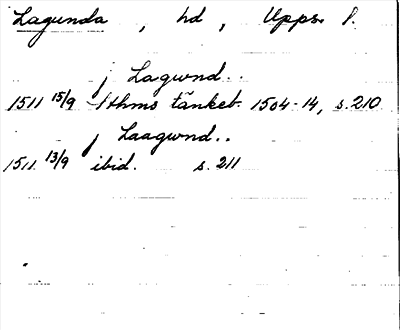 Lagunda , hd , Upps. l.
j Lagwnd..
1511 15/9 Sthms tänkeb. 1504-14, s. 210
j Laagwnd..
1511 13/9 ibid. s. 211